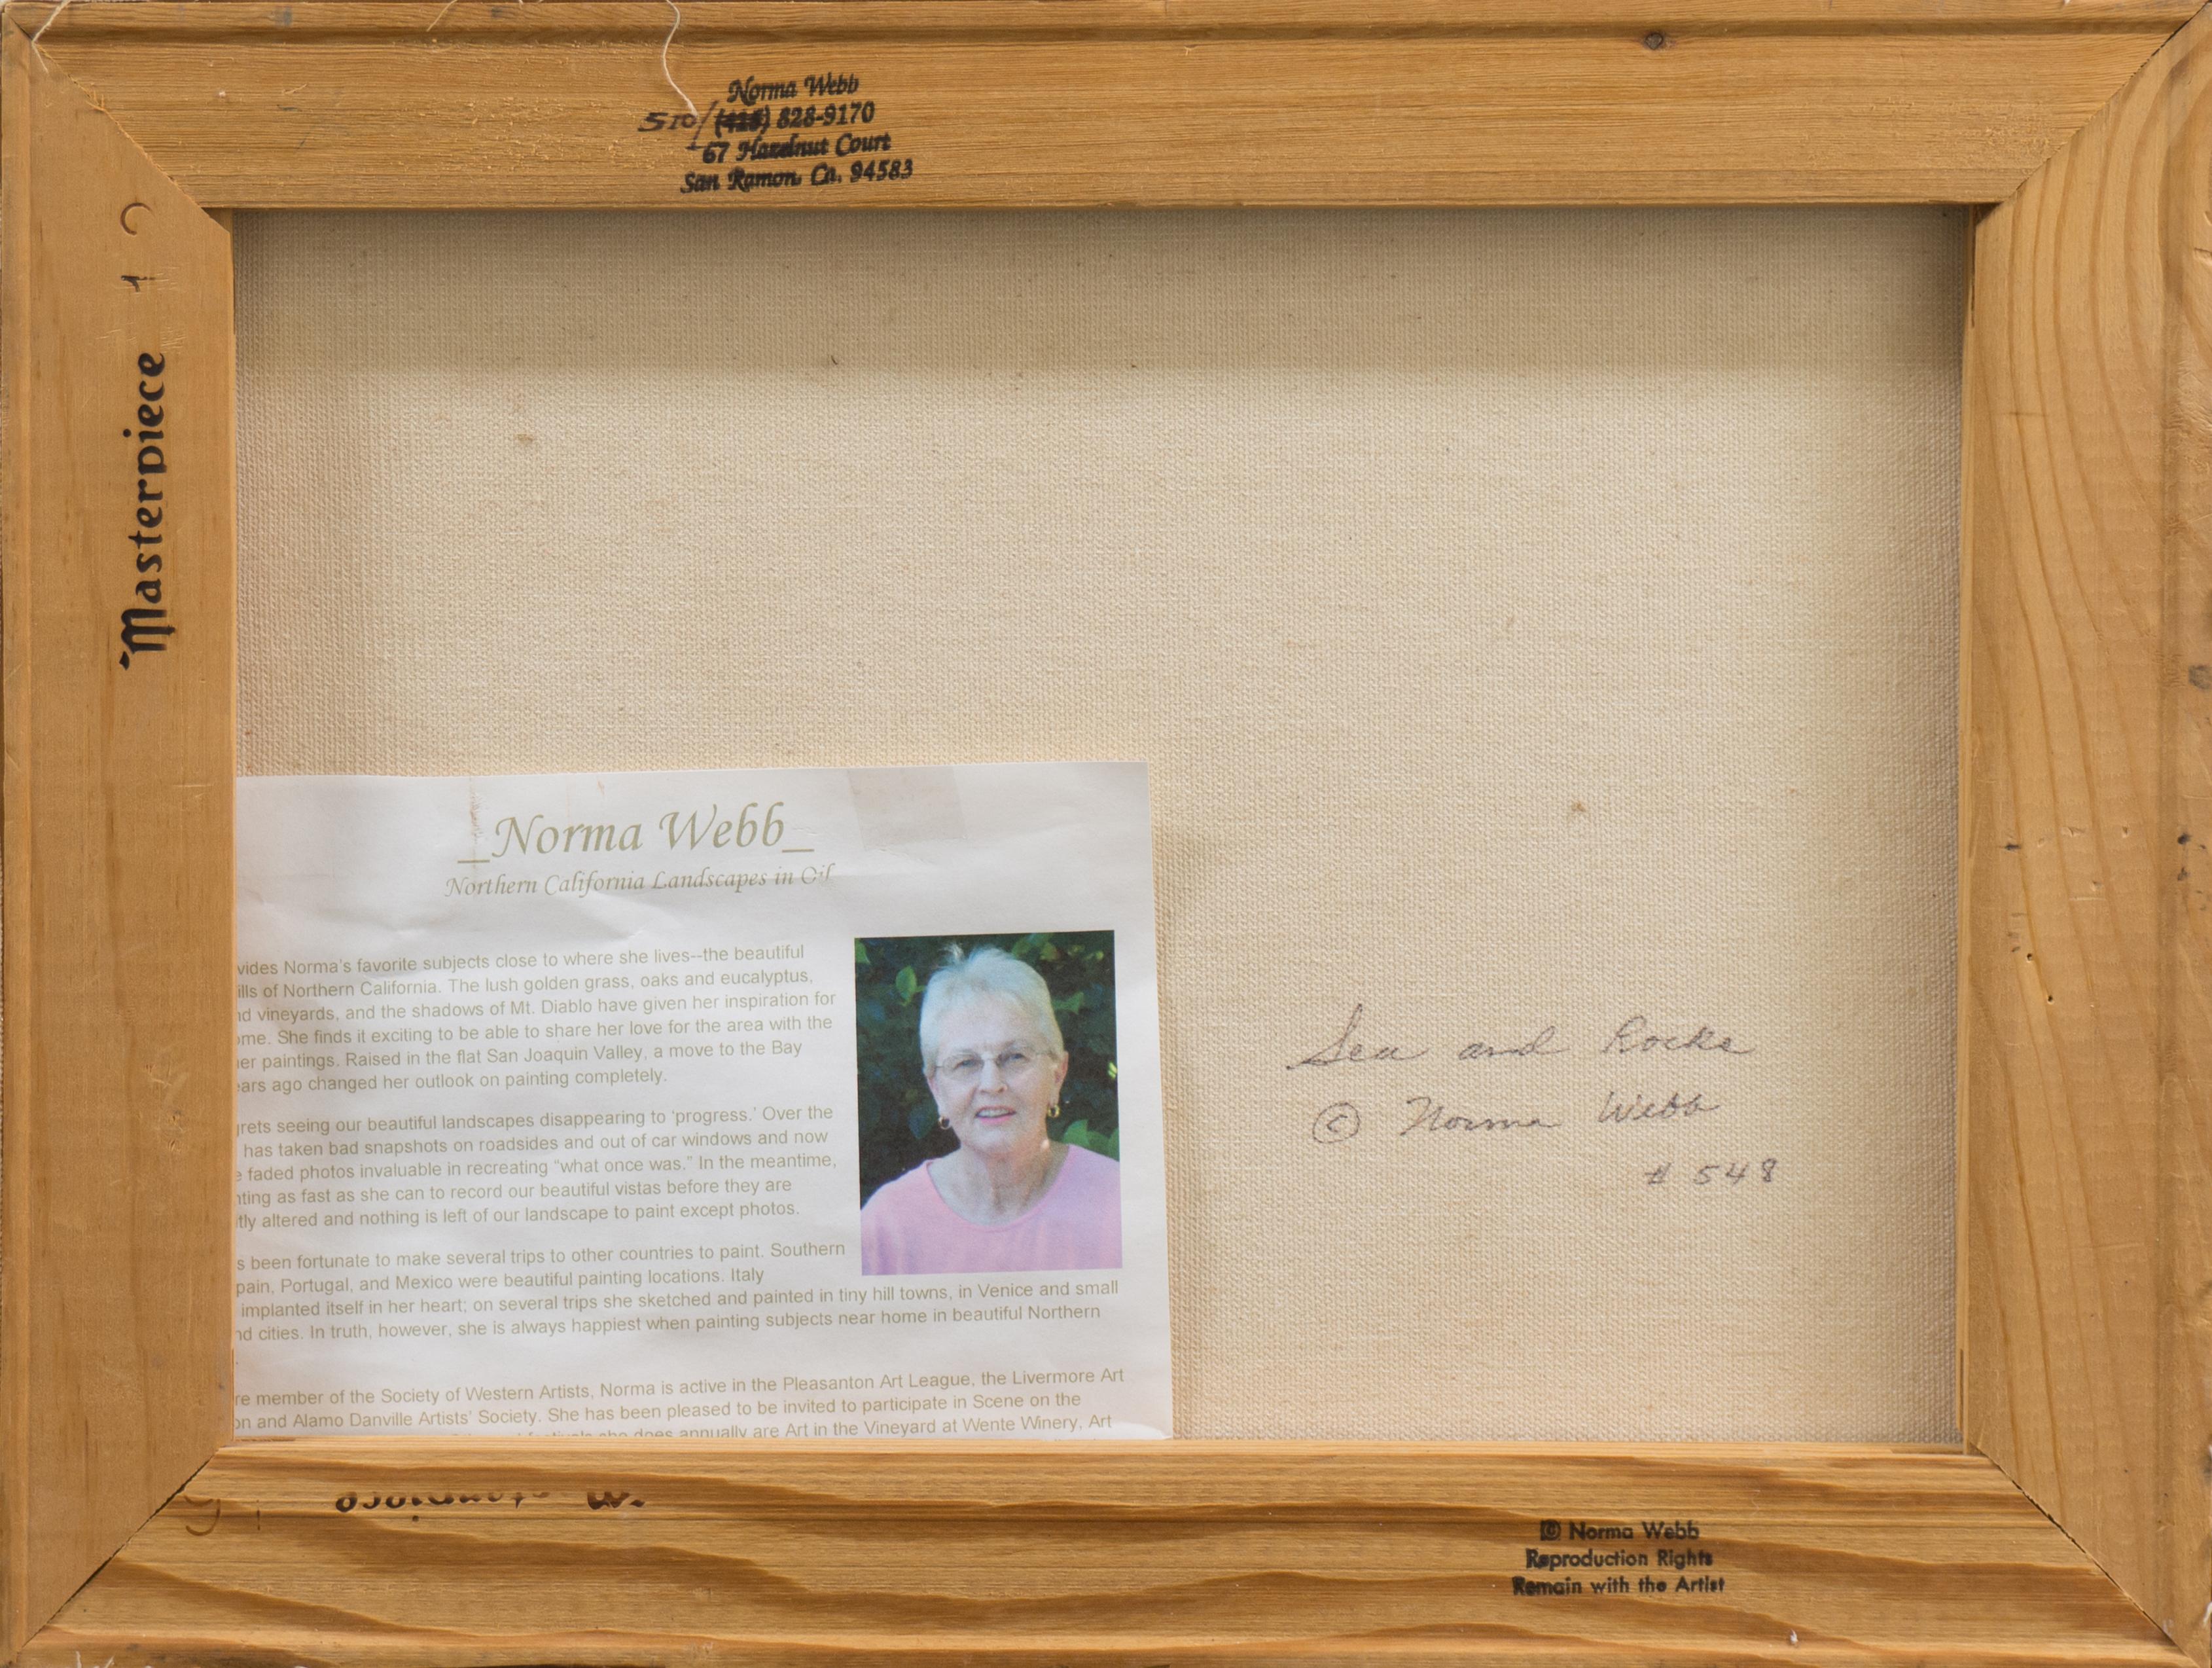 Norma Webb
510/(415) 828-9170
67 Hazelnut Court
San Ramon, Ca. 94583
Masterpiece
_Norma Webb_
Northern California Landscapes in Oil
vides Norma's favorite subjects close to where she lives--the beautiful
ills of Northern California. The lush golden grass, oaks and eucalyptus,
nd vineyards, and the shadows of Mt. Diablo have given her inspiration for
ome. She finds it exciting to be able to share her love for the area with the
er paintings. Raised in the flat San Joaquin Valley, a move to the Bay
ears ago changed her outlook on painting completely.
grets seeing our beautiful landscapes disappearing to 'progress.' Over the
has taken bad snapshots on roadsides and out of car windows and now
e faded photos invaluable in recreating "what once was." In the meantime,
nting as fast as she can to record our beautiful vistas before they are
tly altered and nothing is left of our landscape to paint except photos.
s been fortunate to make several trips to other countries to paint. Southern
pain, Portugal, and Mexico were beautiful painting locations. Italy
implanted itself in her heart; on several trips she sketched and painted in tiny hill towns, in Venice and small
nd cities. In truth, however, she is always happiest when painting subjects near home in beautiful Northern
re member of the Society of Western Artists, Norma is active in the Pleasanton Art League, the Livermore Art
on and Alamo Danville Artists' Society. She has been pleased to be invited to participate in Scene on the
she does annually are Art in the Vineyard at Wente Winery, Art
Sea and Rocks
© Norma Webb
# 548
© Norma Webb
Reproduction Rights
Remain with the Artist